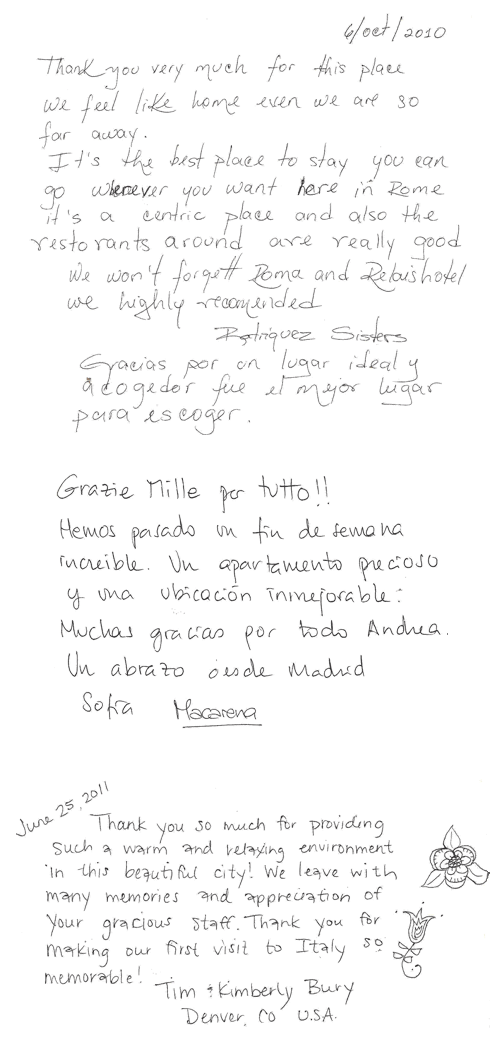 6/oct/2010
Thank you very much for this place
we feel like home even we are so
far away.
It's the best place to stay you can
go whenever you want here in Rome
it's a centric place and also the
restorants around are really good
We won't forgett Roma and Rebus hotel
we highly recomended
Rodriguez Sisters
Gracias por un lugar ideal y
acogedor fue el mejor lugar
para escoger.
Grazie Mille per tutto!!
Hemos pasado un fin de semana
increible. Un apartamento precioso
y una ubicación inmejorable:
Muchas gracias por todo Andrea.
Un abrazo desde Madrid
Sofia Macarena
June 25, 2011
Thank you so much for providing
such a warm and relaxing environment
in this beautiful city! We leave with
many memories and appreciation of
your gracious staff. Thank you for
making our first visit to Italy so
memorable!
Tim & Kimberly Bury
Denver, CO U.S.A.